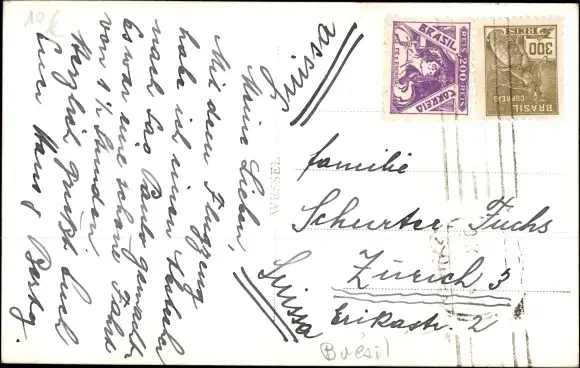 10
Suissa
Meine Lieben,
Mit dem Flugzeug
habe ich einen
nach Sao Paulo gemacht,
Es war eine schöne Fahrt
von 1½ Stunden
Herzlich grüsst Euch
Euer Hans &
WESSEL
Familie
Schurter-Fuchs
Zürich 3
Erikastr. 2
Suissa
BRASIL
REIS 200 REIS
CORREIO
300
REIS
BRASIL
CORREIO